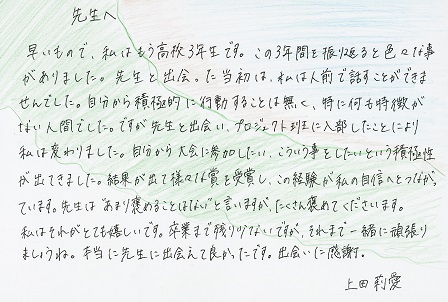 先生へ
早いもので、私はもう高校3年生です。この3年間を振り返ると色々な事
がありました。先生と出会った当初は、私は人前で話すことができま
せんでした。自分から積極的に行動することは無く、特に何も特徴が
ない人間でした。ですが先生と出会い、プロジェクト班に入部したことにより
私は変わりました。自分から大会に参加したい、こういう事をしたいという積極性
が出てきました。結果が出て様々な賞を受賞し、この経験が私の自信へとつながっ
ています。先生は"あまり褒めることはない"と言いますが、たくさん褒めてくださいます。
私はそれがとても嬉しいです。卒業まで残り少ないですが、それまで一緒に頑張り
ましょうね。本当に先生に出会えて良かったです。出会いに感謝。
上田莉愛